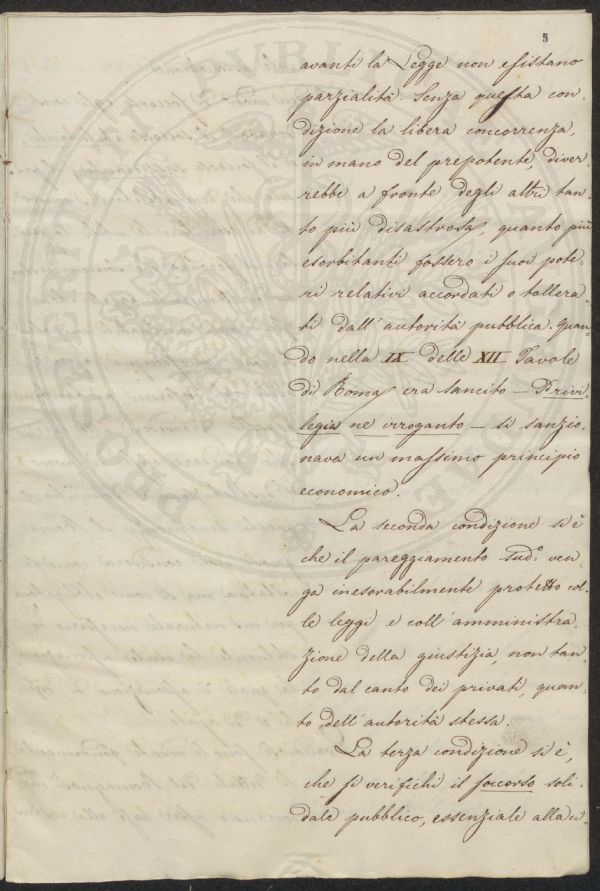 5
avanti la Legge non esistano
parzialità. Senza questa con
dizione la libera concorrenza,
in mano del prepotente, diver
rebbe a fronte degli altri tan
to più disastrosa, quanto più
esorbitanti fossero i suoi pote-
ri relativi accordati o tollera-
ti dall'autorità pubblica. Quan-
do nella IX delle XII Tavole
di Roma era sancito – Privi-
legia ne irroganto – si sanzio-
nava un massimo principio
economico.
La seconda condizione si è
che il pareggiamento sudo. ven-
ga inesorabilmente protetto col-
le leggi e coll'amministra-
zione della giustizia, non tan-
to dal canto dei privati, quan-
to dell'autorità stessa.
La terza condizione si è,
che si verifichi il soccorso soli-
dale pubblico, essenziale alla ci-